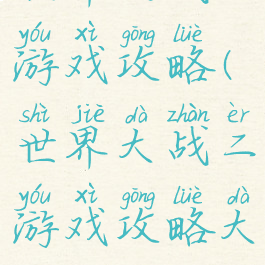 yóu xì gōng lüè
游戏攻略(
shì jiè dà zhàn èr
世界大战二
yóu xì gōng lüè dà
游戏攻略大